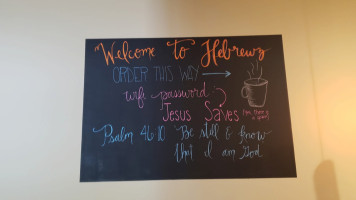 Welcome to Hebrewz
ORDER THIS WAY
wifi password
Jesus Saves
(Yes, there's a space)
Psalm 46:10 Be still & know
that I am God